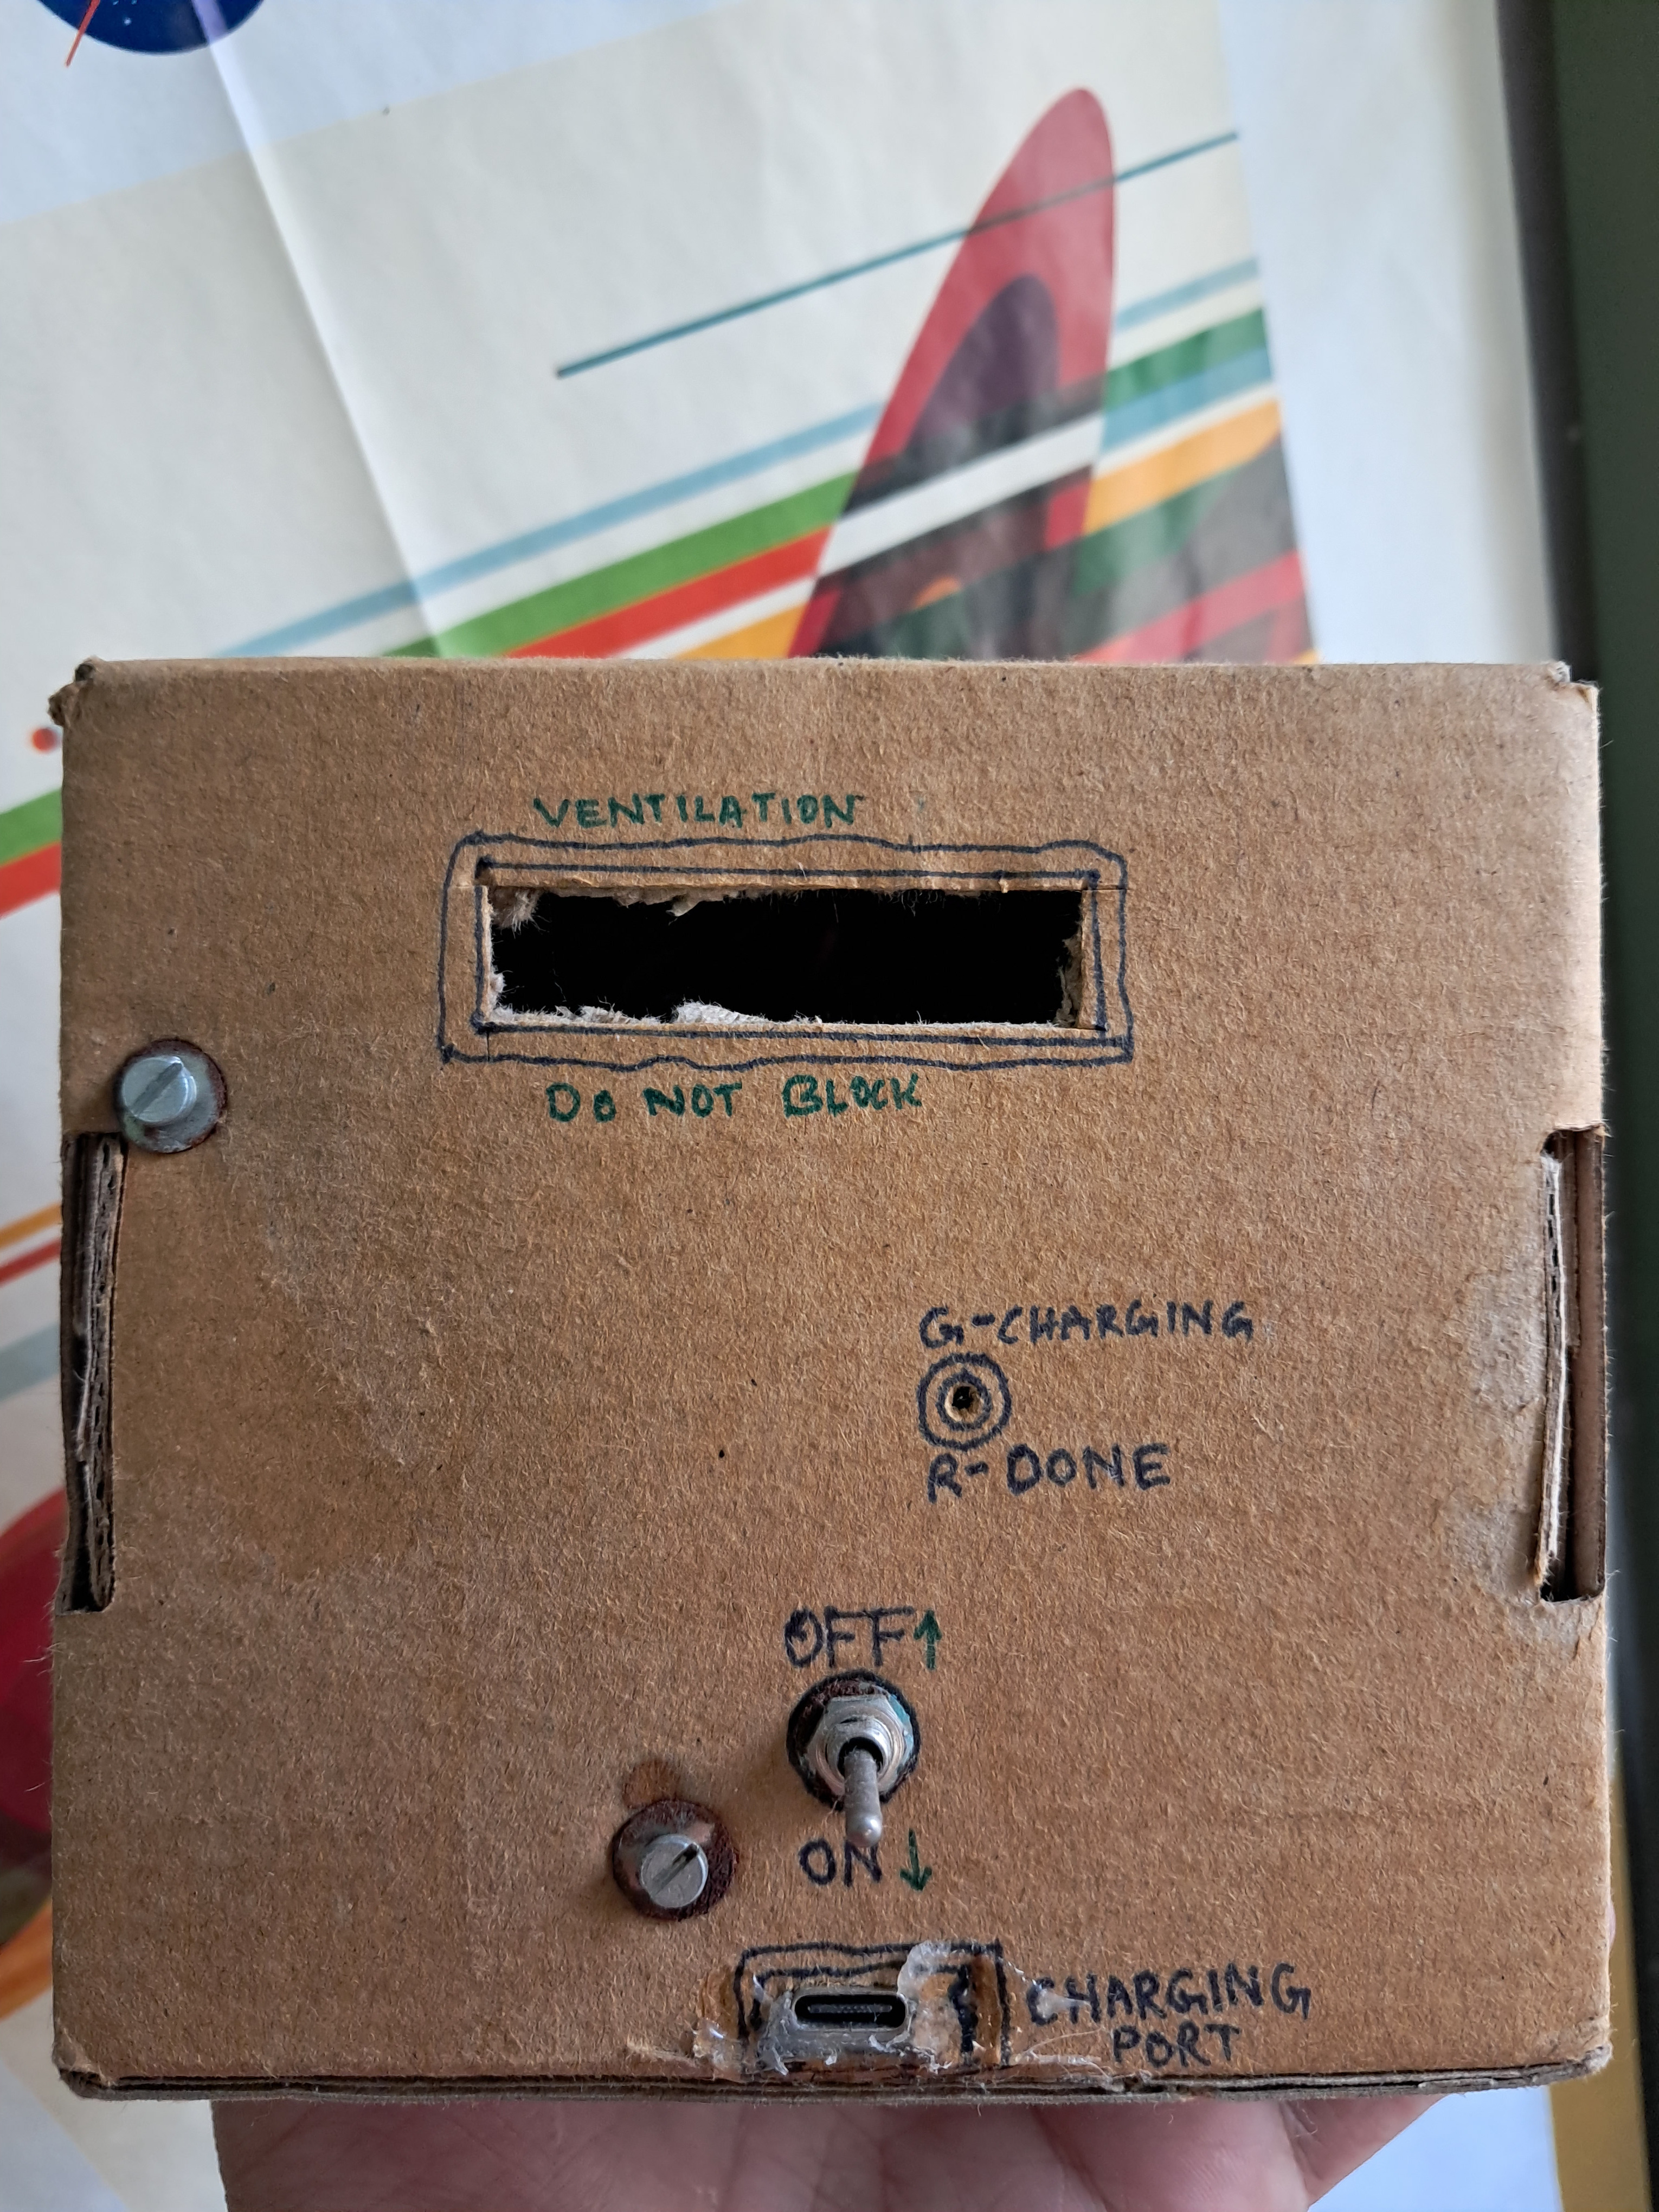 VENTILATION
DO NOT BLOCK
G-CHARGING
R-DONE
OFF↑
ON↓
CHARGING
PORT